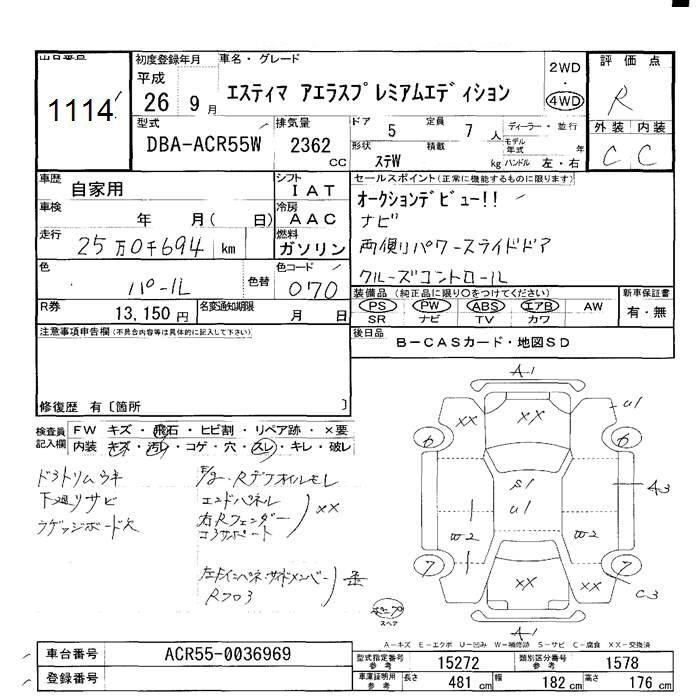 1114
初度登録年月
平成
26 9 月
車名・グレード
エスティマ アエラスプレミアムエディション
2WD
・
4WD
評価点
R
外装 内装
C C
型式
DBA-ACR55W
排気量
2362
CC
ドア 5 定員 7 人
ディーラー・並行
形状 ステW 積載 kg
モデル年式 年
ハンドル 左・右
車歴 自家用
シフト IAT
車検 年 月( 日)
冷房 AAC
走行 25万0千694 km
燃料 ガソリン
色 パール 色替
色コード 070
R券 13,150円
名変通知期限 月 日
セールスポイント(正常に機能するものに限ります)
オークションデビュー!!
ナビ
両側リパワースライドドア
クルーズコントロール
装備品 (純正品に限り○をつけてください)
PS PW ABS エアB AW
SR ナビ TV カワ
新車保証書
有・無
後日品
B-CASカード・地図SD
注意事項申告欄(不具合内容等は具体的に記入して下さい)
修復歴 有〔箇所 〕
検査員記入欄
FW キズ・飛石・ヒビ割・リペア跡・×要
内装 キズ・汚レ・コゲ・穴・スレ・キレ・破レ
ドアトリムウキ
下廻リサビ
ラゲッジボード欠
F/g・Rデフオイルモレ
エンドパネル
右Rフェンダー
コアサポート
XX
Rフロア
A-1
XX
XX
u1
6
6
S1
u1
A3
W2
W2
7
7
XX
XX
C3
A-1
スペア
A-キズ E-エクボ U-凹み W-補修跡 S-サビ C-腐食 XX-交換済
車台番号 ACR55-0036969
登録番号
型式指定番号 参考 15272
類別区分番号 参考 1578
車庫証明用 参考 長さ 481 cm 幅 182 cm 高さ 176 cm